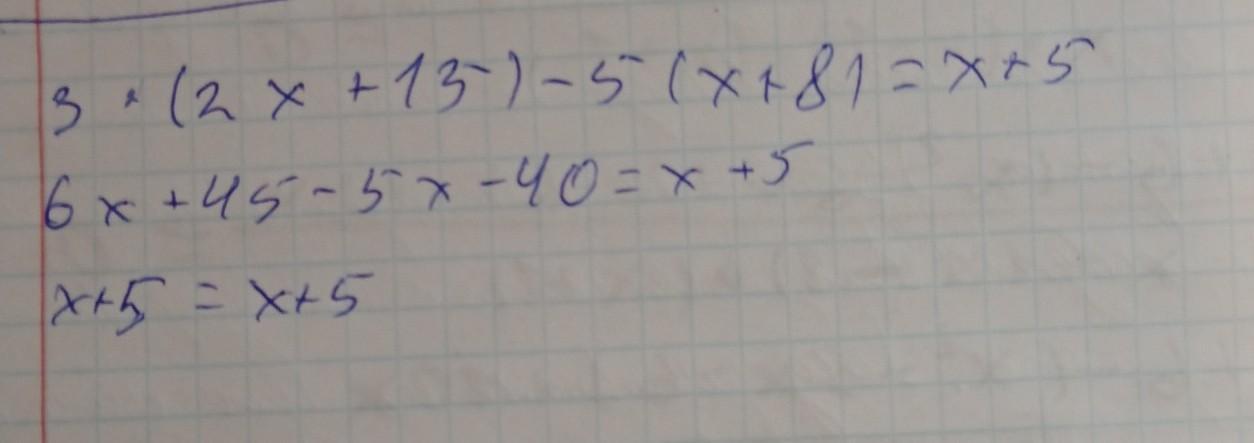 3 · (2x + 15) - 5 (x + 8) = x + 5
6x + 45 - 5x - 40 = x + 5
x + 5 = x + 5